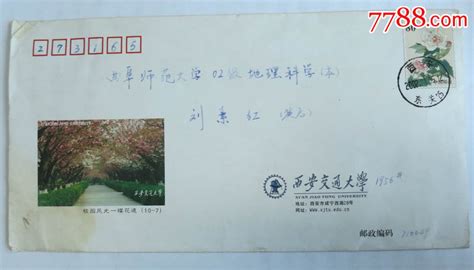 7788.com
273165
80
西安
曲阜师范大学 02级地理科学(本)
刘素红(收)
西安交通大学
校园风光—樱花道 (10-7)
西安交通大學
XI'AN JIAOTONG UNIVERSITY
地址：西安市咸宁西路28号
网址：www.xjtu.edu.cn
邮政编码